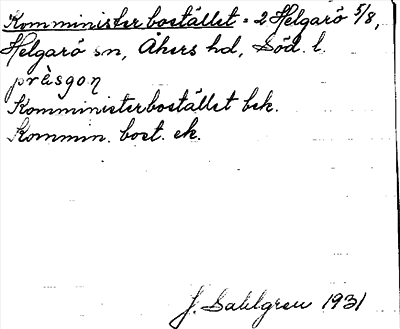 Komministerbostället = 2 Helgarö 5/8,
Helgarö sn, Åkers hd, Söd. l.
prèsgoƞ
Komministerbostället bsk.
Kommin. bost. ek.
J. Sahlgren 1931